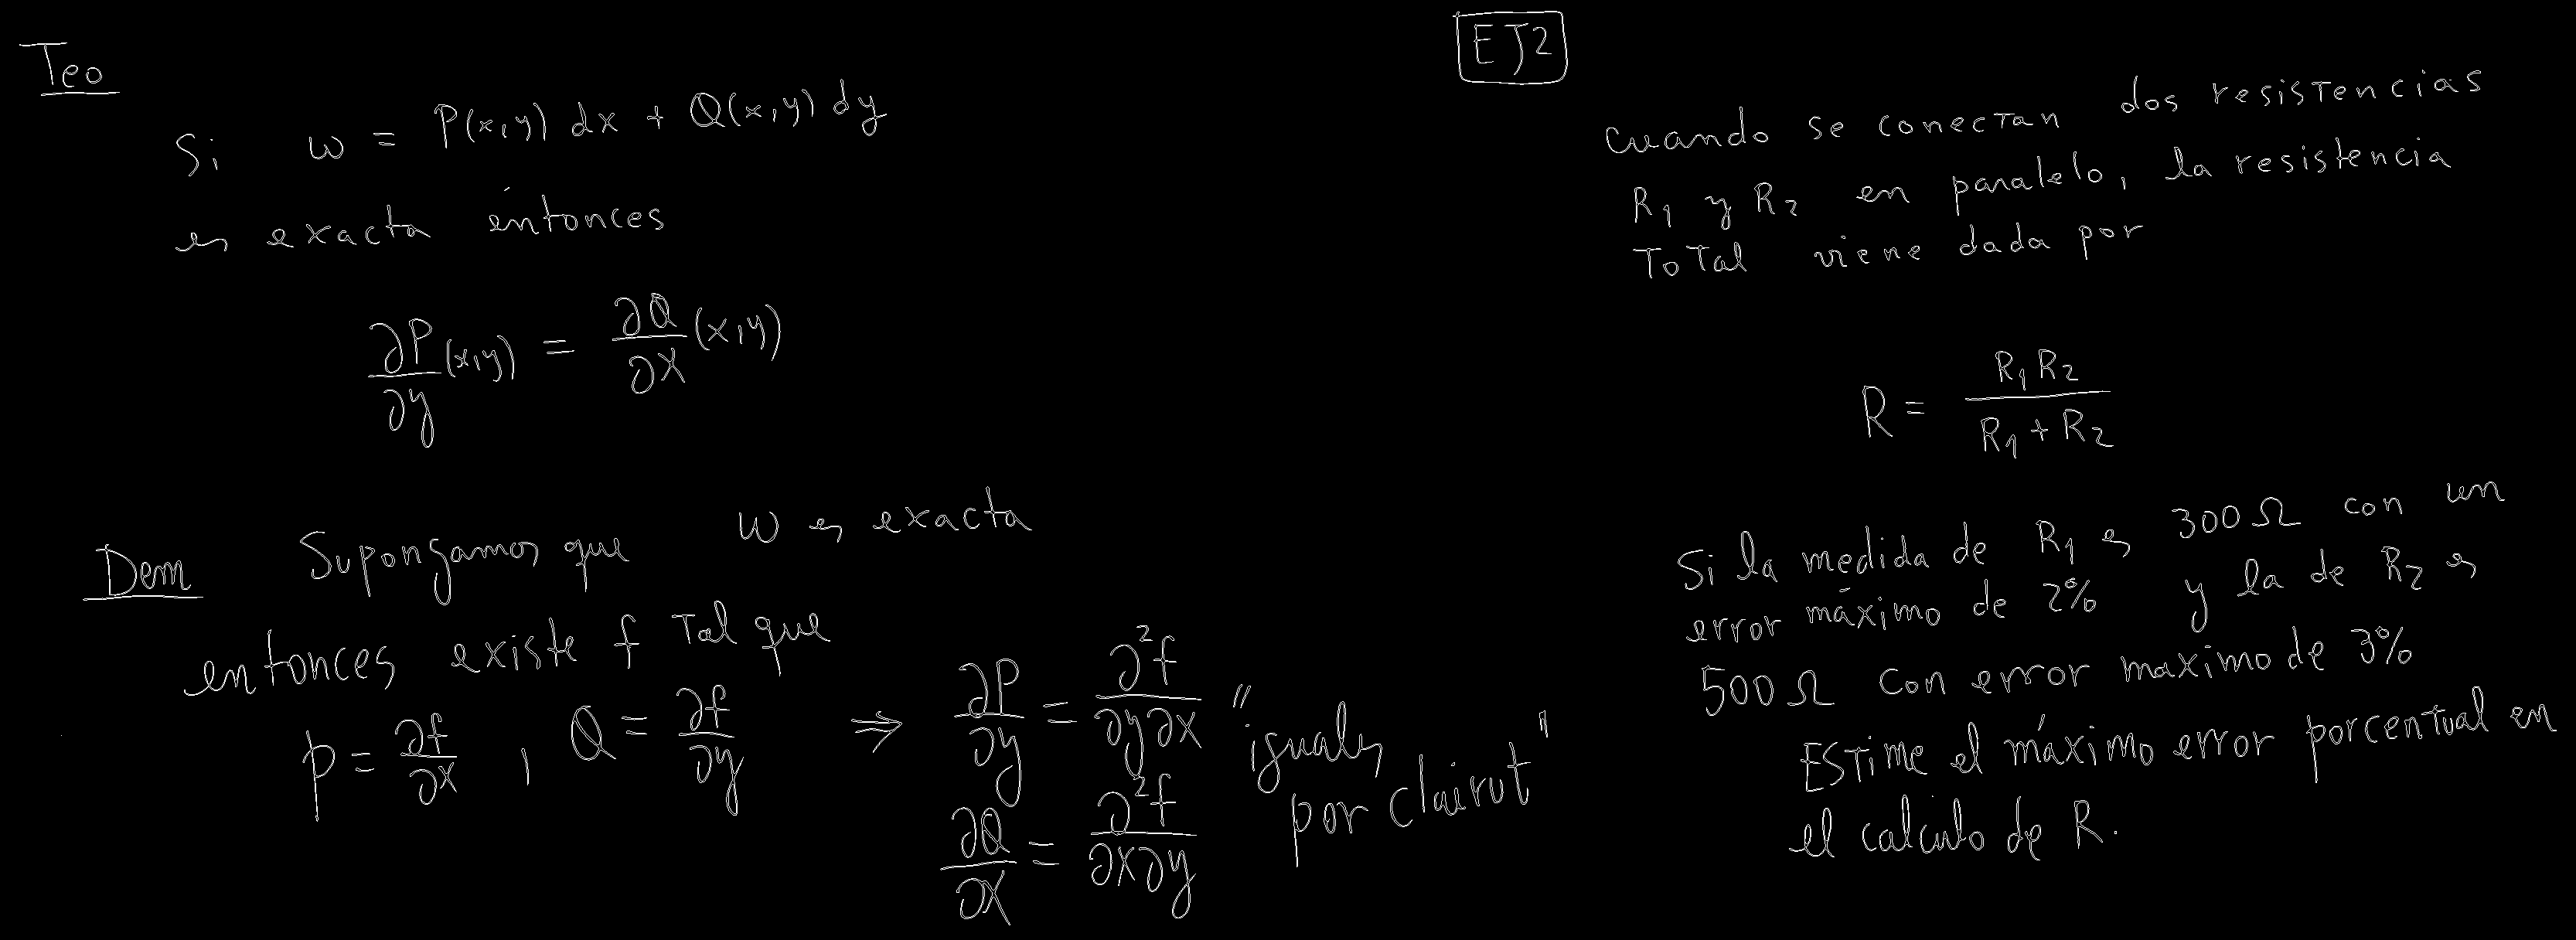 Teo
Si w = P(x,y) dx + Q(x,y) dy
es exacta entonces
∂P/∂y (x,y) = ∂Q/∂x (x,y)
Dem Supongamos que w es exacta
entonces existe f Tal que
P = ∂f/∂x , Q = ∂f/∂y ⇒ ∂P/∂y = ∂²f/∂y∂x "iguales
∂Q/∂x = ∂²f/∂x∂y por clairut"
EJ2
Cuando se conectan dos resistencias
R₁ y R₂ en paralelo, la resistencia
Total viene dada por
R = R₁R₂/(R₁+R₂)
Si la medida de R₁ es 300Ω con un
error máximo de 2% y la de R₂ es
500Ω con error maximo de 3%
ESTime el máximo error porcentual en
el calculo de R.